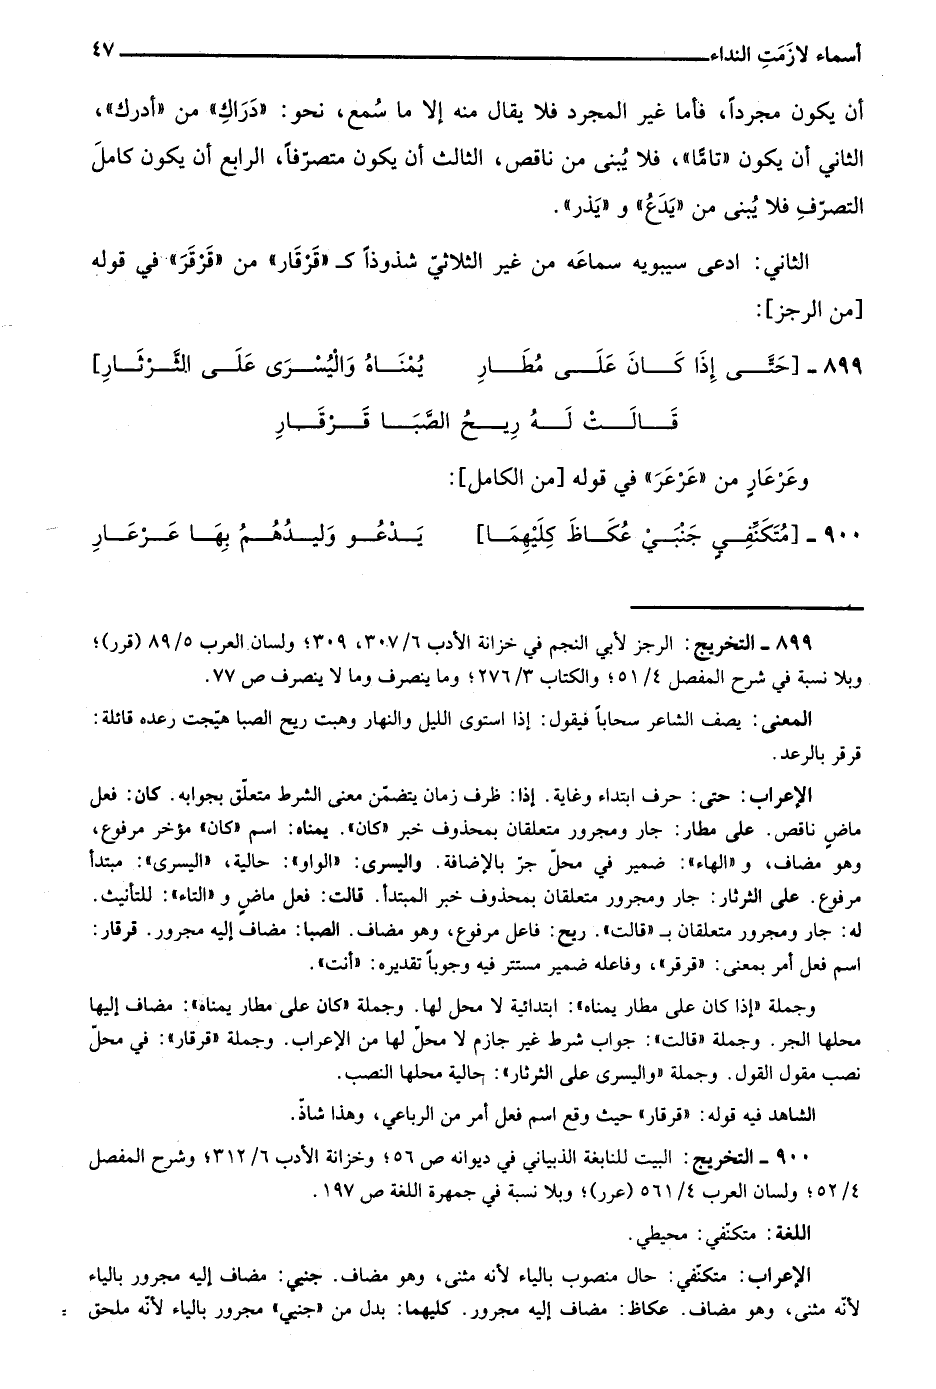 أسماء لازَمَتِ النداء ٤٧
أن يكون مجرداً، فأما غير المجرد فلا يقال منه إلا ما سُمع، نحو: «دَرَاكِ» من «أدرك»،
الثاني أن يكون «تامًّا»، فلا يُبنى من ناقص، الثالث أن يكون متصرّفاً، الرابع أن يكون كاملَ
التصرّفِ فلا يُبنى من «يَدَعُ» و «يَذر».
الثاني: ادعى سيبويه سماعَه من غير الثلاثيّ شذوذاً كـ «قَرْقار» من «قَرْقَرَ» في قوله
[من الرجز]:
٨٩٩ ـ [حَتَّـــى إِذَا كَـــانَ عَلَـــى مُطَـــارِ يُمْنَـــاهُ وَالْيُسْـــرَى عَلَـــى الثَّـــرْثَـــارِ]
قَـــالَـــتْ لَـــهُ رِيـــحُ الصَّبَـــا قَـــرْقَـــارِ
وعَرْعَارٍ من «عَرْعَرَ» في قوله [من الكامل]:
٩٠٠ ـ [مُتَكَنِّفِـــي جَنْبَـــيْ عُكَـــاظَ كِلَيْهِمَـــا] يَـــدْعُـــو وَلِيـــدُهُـــمُ بِهَـــا عَـــرْعَـــارِ
٨٩٩ ـ التخريج: الرجز لأبي النجم في خزانة الأدب ٦/ ٣٠٧، ٣٠٩؛ ولسان العرب ٥/ ٨٩ (قرر)؛
وبلا نسبة في شرح المفصل ٤/ ٥١؛ والكتاب ٣/ ٢٧٦؛ وما ينصرف وما لا ينصرف ص ٧٧.
المعنى: يصف الشاعر سحاباً فيقول: إذا استوى الليل والنهار وهبت ريح الصبا هيّجت رعده قائلة:
قرقر بالرعد.
الإعراب: حتى: حرف ابتداء وغاية. إذا: ظرف زمان يتضمّن معنى الشرط متعلّق بجوابه. كان: فعل
ماضٍ ناقص. على مطار: جار ومجرور متعلقان بمحذوف خبر «كان». يمناه: اسم «كان» مؤخر مرفوع،
وهو مضاف، و «الهاء»: ضمير في محلّ جرّ بالإضافة. واليسرى: «الواو»: حالية، «اليسرى»: مبتدأ
مرفوع. على الثرثار: جار ومجرور متعلقان بمحذوف خبر المبتدأ. قالت: فعل ماضٍ و «التاء»: للتأنيث.
له: جار ومجرور متعلقان بـ «قالت». ريح: فاعل مرفوع، وهو مضاف. الصبا: مضاف إليه مجرور. قرقار:
اسم فعل أمر بمعنى: «قرقر»، وفاعله ضمير مستتر فيه وجوباً تقديره: «أنت».
وجملة «إذا كان على مطار يمناه»: ابتدائية لا محل لها. وجملة «كان على مطار يمناه»: مضاف إليها
محلها الجر. وجملة «قالت»: جواب شرط غير جازم لا محلّ لها من الإعراب. وجملة «قرقار»: في محلّ
نصب مقول القول. وجملة «واليسرى على الثرثار»: حالية محلها النصب.
الشاهد فيه قوله: «قرقار» حيث وقع اسم فعل أمر من الرباعي، وهذا شاذّ.
٩٠٠ ـ التخريج: البيت للنابغة الذبياني في ديوانه ص ٥٦؛ وخزانة الأدب ٦/ ٣١٢؛ وشرح المفصل
٤/ ٥٢؛ ولسان العرب ٤/ ٥٦١ (عرر)؛ وبلا نسبة في جمهرة اللغة ص ١٩٧.
اللغة: متكنّفي: محيطي.
الإعراب: متكنّفي: حال منصوب بالياء لأنه مثنى، وهو مضاف. جنبي: مضاف إليه مجرور بالياء
لأنّه مثنى، وهو مضاف. عكاظ: مضاف إليه مجرور. كليهما: بدل من «جنبي» مجرور بالياء لأنّه ملحق =